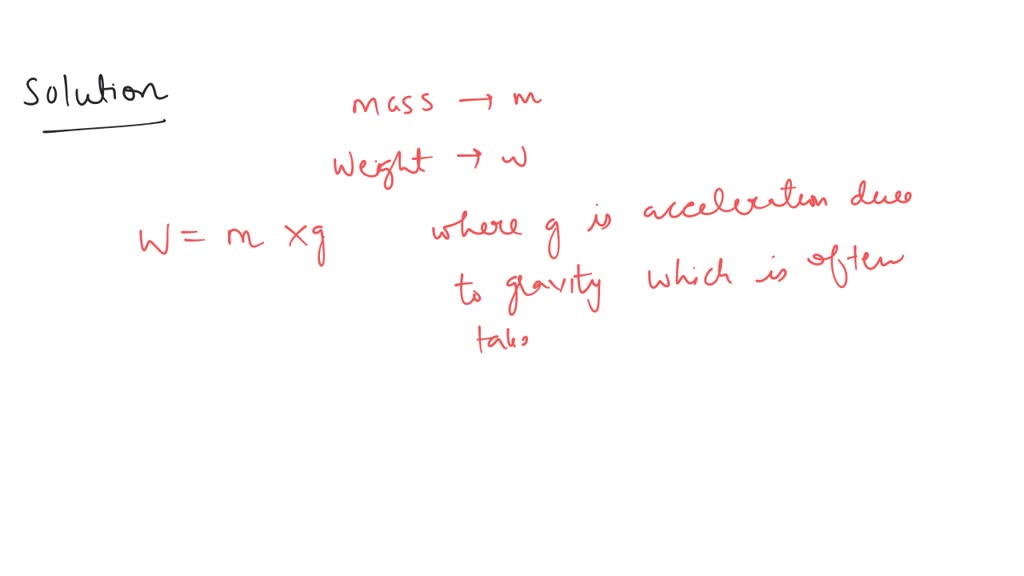 Solution
mass → m
Weight → w
W = m × g where g is acceleration due
to gravity which is often
take